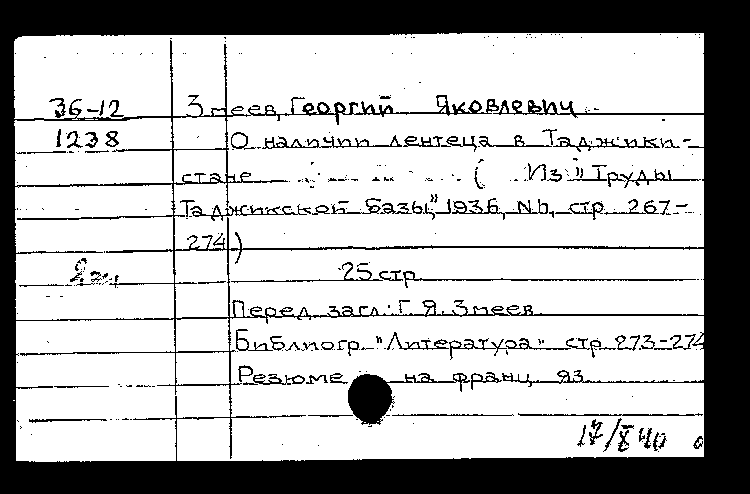 36-12 Змеев, Георгий Яковлевич
1238 О наличии лентеца в Таджики-
стане ( Из "Труды
Таджикской базы," 1936, N6, стр. 267-
274)
2эк. 25 стр.
Перед. загл.: Г. Я. Змеев.
Библиогр. "Литература" стр. 273-274
Резюме на франц. яз.
17/X 40